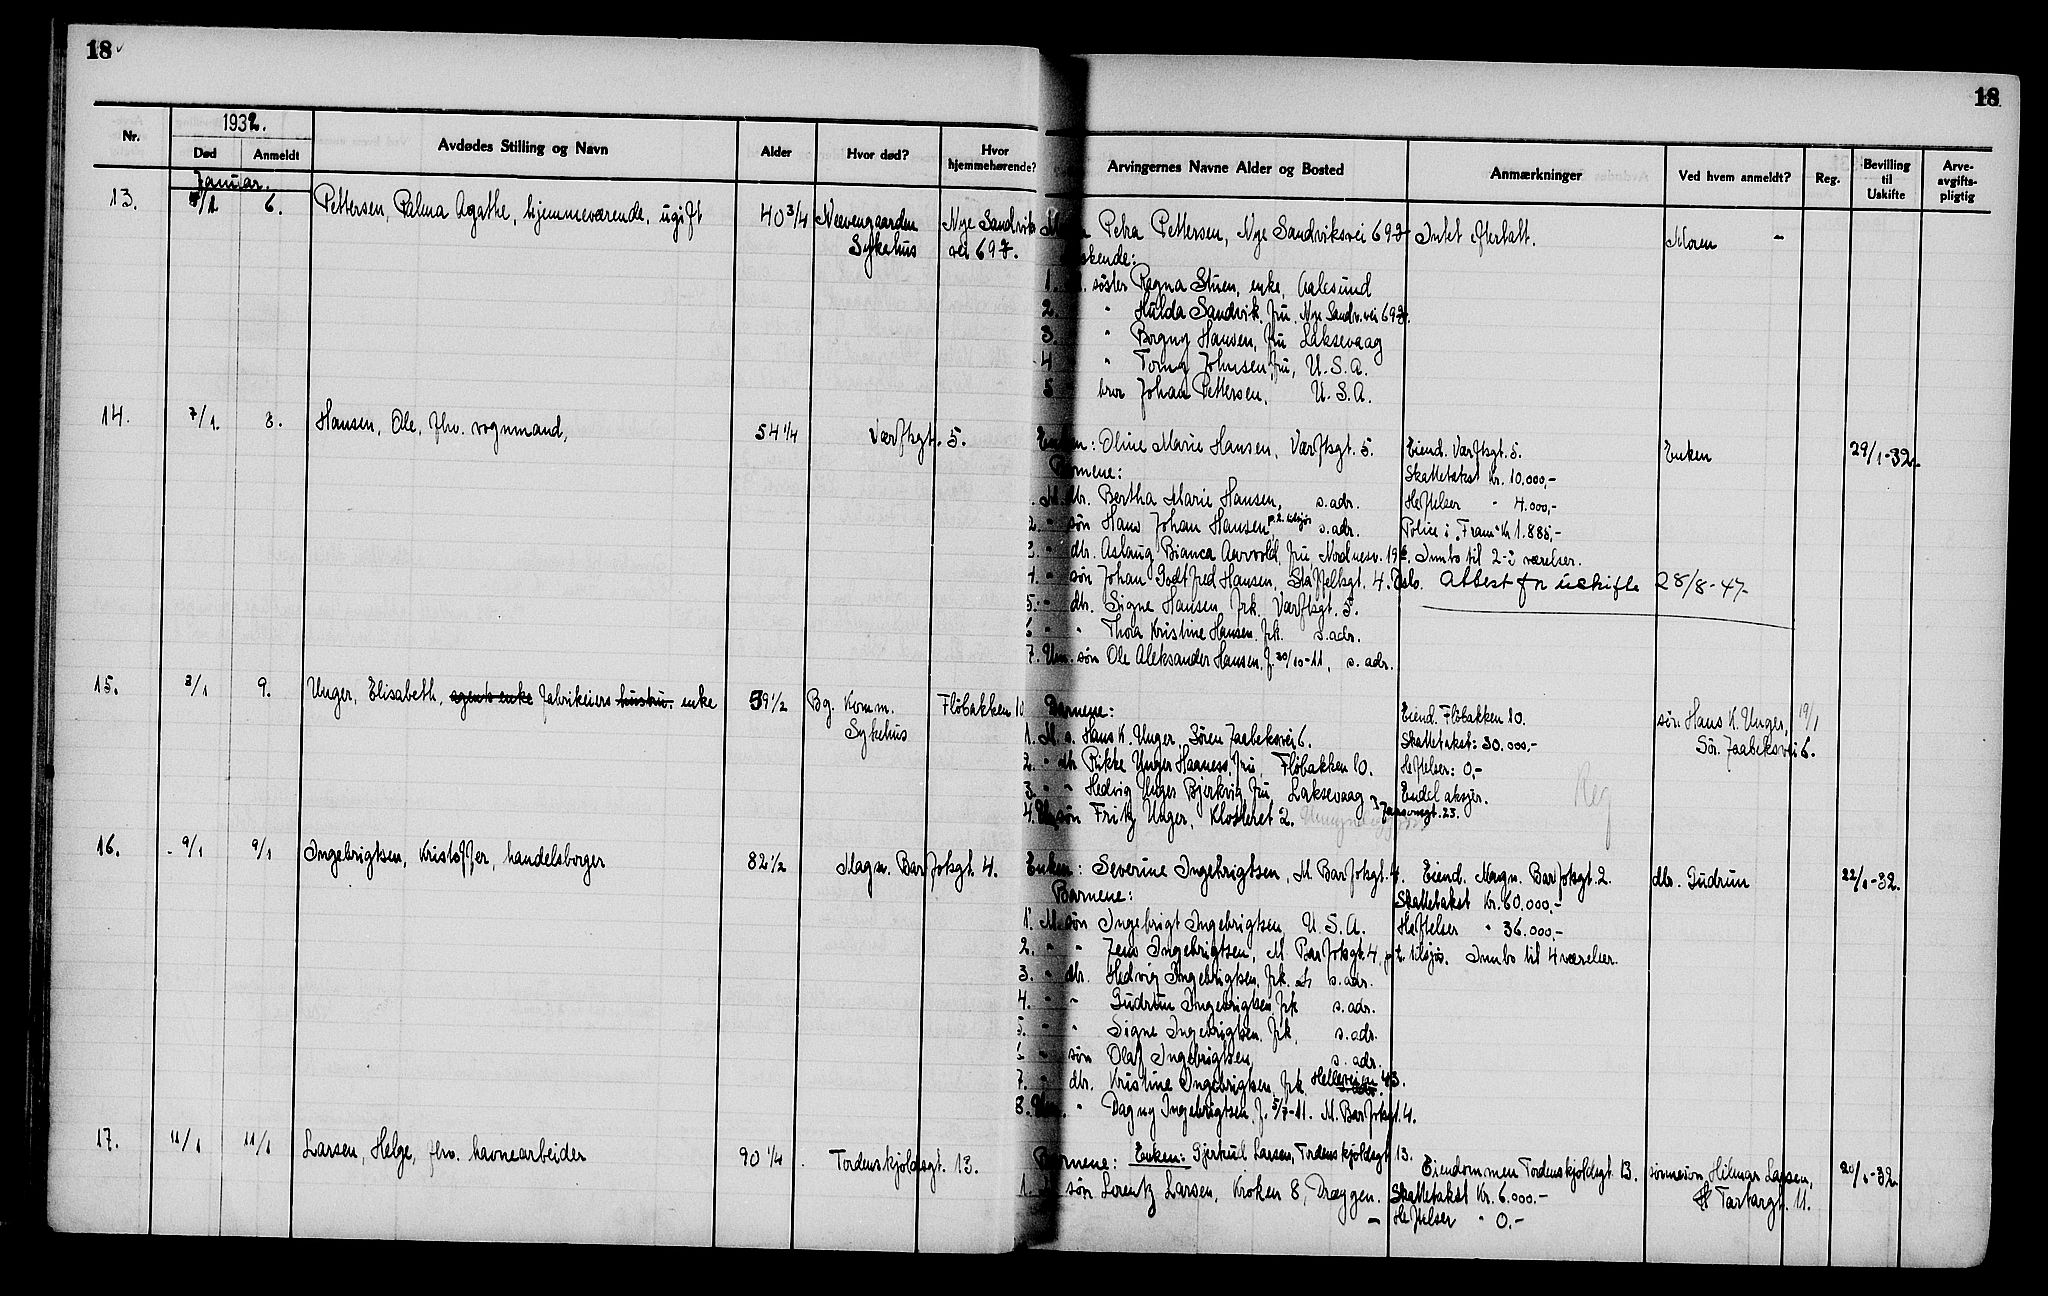 18
18
1932.
Nr.
Død
Anmeldt
Avdødes Stilling og Navn
Alder
Hvor død?
Hvor hjemmehørende?
Arvingernes Navne Alder og Bosted
Anmærkninger
Ved hvem anmeldt?
Reg.
Bevilling til Uskifte
Arve-avgifts-pligtig
Januar.
13. 5/1 6. Pettersen, Palma Agathe, hjemmeværende, ugift 40 3/4 Neevengaarden Nye Sandviks
Sykehus vei 69
Petra Pettersen, Nye Sandviksvei 69 Intet efterlatt. Moren -
1. søster Ragna Stuen, enke, Aalesund
2. " Hulda Sandvik, fru, Nye Sandv.vei 69
3. " Borgny Hansen, fru Laksevaag
4 " Johnsen, fru, U.S.A.
5 bror Johan Pettersen, U.S.A.
14. 7/1. 8. Hansen, Ole, fhv. vognmand, 54 1/4 Værftsgt. 5.
Enken: Oline Marie Hansen, Værftsgt. 5. Eiend. Værftsgt. 5. Enken 29/1-32.
Barnene: Skattetakst Kr. 10.000,-
M. dtr. Bertha Marie Hansen, s. adr. Heftelser " 4.000,-
2. " søn Hans Johan Hansen, p.t. tilsjøs s. adr. Police i "Fram" Kr 1.885,-
3. " dtr. Aslaug Bianca Aarvold, fru, Nordnesv. 19 Innbo til 2-3 værelser.
4. " søn Johan Godtfred Hansen, Staffeltsgt. 4. Oslo. Attest for uskifte 28/8-47-
5. " dtr. Signe Hansen frk. Værftsgt. 5.
6 " " Thora Kristine Hansen. frk. s. adr.
7. Um. søn Ole Aleksander Hansen, f. 30/10-11, s. adr.
15. 8/1 9. Unger, Elisabeth, agents enke fabrikeiers hustru. enke 59 1/2 Bg. Komm. Fløbakken 10
Sykehus
Barnene: Eiend. Fløbakken 10. søn Hans K. Unger, 19/1
1. M. s. Hans K. Unger, Søren Jaabeksvei 6. Skattetakst: 30.000.- Sør. Jaabeksvei 6.
2. " dtr Rikke Unger Haaness, fru, Fløbakken 10. Heftelser: 0,-
3. " " Hedvig Unger Bjerkvik fru Laksevaag Endel aksjer. Reg
4. Um søn Fritz Unger, Klosteret 2.
16. 9/1 9/1 Ingebrigtsen, Kristoffer, handelsborger 82 1/2 Magn. Barfotsgt. 4.
Enken: Severine Ingebrigtsen, M. Barfotsgt. 4. Eiend. Magn. Barfotsgt. 2. dtr. Gudrun 22/1-32.
Barnene: Skattetakst Kr. 60.000.-
1. M. søn Ingebrigt Ingebrigtsen, U.S.A. Heftelser " 36.000,-
2. " " Jens Ingebrigtsen, M. Barfotsgt. 4 p.t. tilsjøs. Innbo til 4 værelser.
3. " dtr. Hedvig Ingebrigtsen, frk. s. adr.
4. " " Gudrun Ingebrigtsen frk s. adr.
5. " " Signe Ingebrigtsen, frk. s. adr.
6 " søn Olaf Ingebrigtsen, s. adr.
7. " dtr. Kristine Ingebrigtsen, frk. Helleveien 43.
8. Um. " Dagny Ingebrigtsen, f. 5/7-11. M. Barfotsgt. 4.
17. 11/1 11/1 Larsen, Helge, fhv. havnearbeider 90 1/4. Tordenskjoldsgt. 13.
Barnene: Enken: Gjertrud Larsen, Tordenskjoldsgt 13. Eiendommen Tordenskjoldsgt. 13. sønnesøn Hilmar Larsen, 20/1-32
1. søn Lorentz Larsen, Kroken 8, Dræggen. Skattetakst Kr. 6.000.- Tartargt. 11.
- Heftelser " 0.-